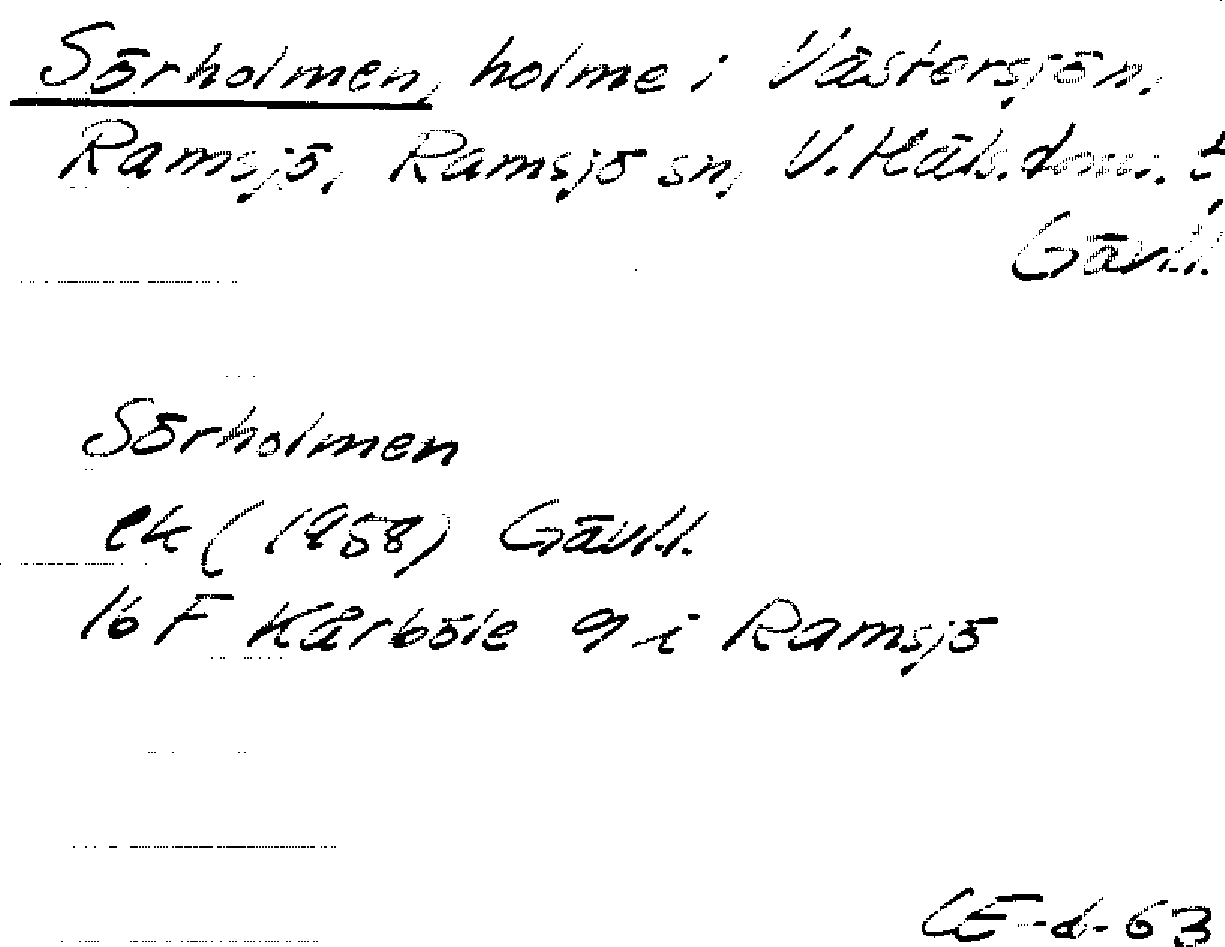 Sörholmen, holme i Västersjön,
Ramsjö, Ramsjö sn, V. Häls. doms.
Gävl.l.
Sörholmen
ek (1958) Gävl.l.
16 F Kårböle 9 i Ramsjö
CE-d-63